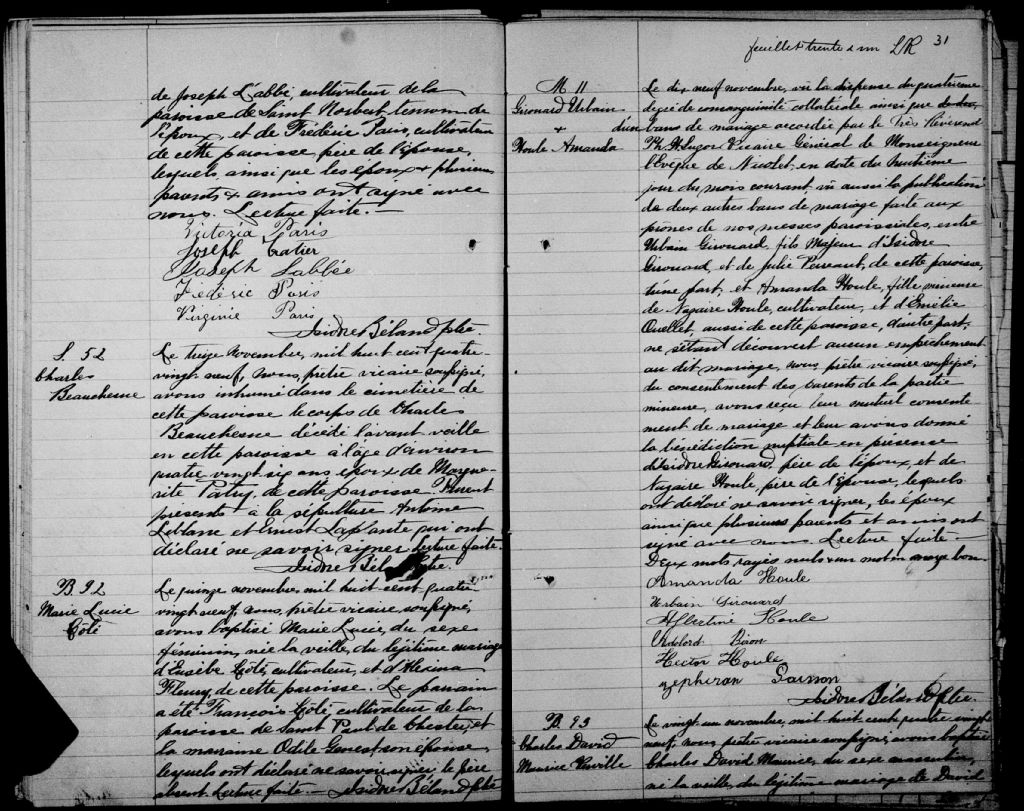 de Joseph Labbé cultivateur de la
paroisse de Saint Norbert, témoin de
l'époux, et de Frédéric Paris, cultivateur
de cette paroisse père de l'épouse,
lesquels, ainsi que les époux & plusieurs
parents & amis ont signé avec
nous. Lecture faite.—
Victoria Paris
Joseph
Joseph Labbée
Frédéric Paris
Virginie Paris
Isidre Béland Ptre.
S. 52
Charles
Beauchesne
Le treize Novembre, mil huit cent quatre
vingt neuf, nous, prêtre vicaire soussigné,
avons inhumé dans le cimetière de
cette paroisse le corps de Charles
Beauchesne décédé l'avant veille
en cette paroisse à l'âge d'environ
quatre vingt six ans époux de Margue-
rite Patry, de cette paroisse. Furent
présents à la sépulture Antoine
Leblanc et Ernest Laplante qui ont
déclaré ne savoir signer. Lecture faite.
Isidre Béland Ptre.
B 92
Marie Lucie
Côté
Le quinze novembre, mil huit cent quatre
vingt neuf, nous, prêtre vicaire, soussigné,
avons baptisé Marie Lucie, du sexe
féminin, née la veille, du légitime mariage
d'Eusèbe Côté, cultivateur, et d'
Fleury, de cette paroisse. Le parrain
a été François Côté, cultivateur de la
paroisse de Saint Paul de Chester, et
la marraine Odile Genest son épouse,
lesquels ont déclaré ne savoir signer le père
absent. Lecture faite— Isidre Béland Ptre
feuillet trente & un LR 31
M 11
Girouard Urbain
&
Houle Amanda
Le dix neuf novembre, vu la dispense du quatrième
degré de consanguinité collatérale ainsi que
d'un bans de mariage accordée par le Très Révérend
Vicaire Général de Monseigneur
l'Evêque de Nicolet, en date du huitième
jour du mois courant, vu aussi la publication
de deux autres bans de mariage faite aux
prônes de nos messes paroissiales, entre
Urbain Girouard, fils Majeur d'Isidore
Girouard, et de Julie de cette paroisse,
d'une part, et Amanda Houle, fille mineure
de Nazaire Houle, cultivateur, et d'Emélie
Ouellet, aussi de cette paroisse, d'autre part,
ne s'étant découvert aucun empêchement
au dit mariage, nous, prêtre vicaire soussigné,
du consentement des parents de la partie
mineure, avons reçu leur mutuel consente
ment de mariage et leur avons donné
la bénédiction nuptiale en présence
d'Isidre Girouard, père de l'époux, et de
Nazaire Houle, père de l'Epouse, lesquels
ont déclaré ne savoir signer, les époux
ainsi que plusieurs parents et amis ont
signé avec nous. Lecture faite—
Deux mots rayés nuls & un mot en marge bon.
Amanda Houle
Urbain Girouard
Albertine Houle
Biron
Hector Houle
Zepheran
Isidre Béland Ptre.
B 93
Charles David
Maurice
Le vingt un novembre, mil huit cent quatre vingt
neuf, nous, prêtre vicaire soussigné, avons baptisé
Charles David Maurice, du sexe masculin,
né la veille, du légitime mariage de David